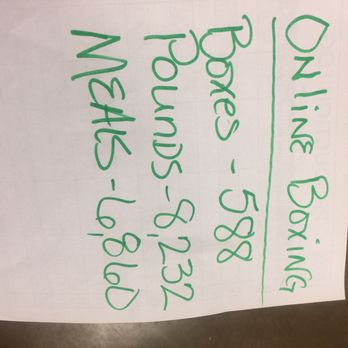 ONLINE BOXING
Boxes - 588
Pounds - 8,232
MEALS - 6,860